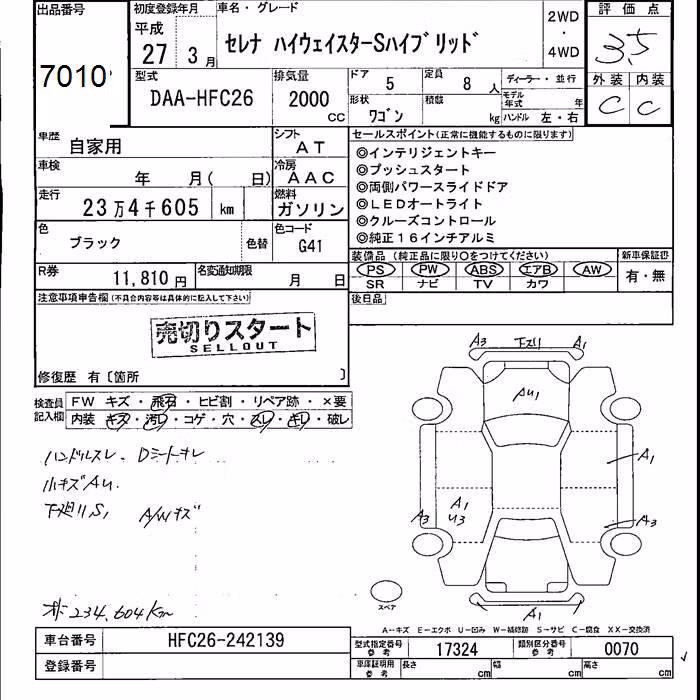 出品番号
7010
初度登録年月
平成
27 年 3 月
車名・グレード
セレナ ハイウェイスターSハイブリッド
2WD
・
4WD
評価点
3.5
外装 内装
C C
型式
DAA-HFC26
排気量
2000 CC
ドア 5
定員 8 人
ディーラー・並行
形状 ワゴン
積載 kg
モデル年式 年
ハンドル 左・右
車歴
自家用
シフト
AT
車検
年 月( 日)
冷房
AAC
走行
23万4千605 km
燃料
ガソリン
色
ブラック
色替
色コード
G41
R券
11,810 円
名変通知期限
月 日
セールスポイント(正常に機能するものに限ります)
◎インテリジェントキー
◎プッシュスタート
◎両側パワースライドドア
◎LEDオートライト
◎クルーズコントロール
◎純正16インチアルミ
装備品(純正品に限り○をつけてください)
PS PW ABS エアB AW
SR ナビ TV カワ
新車保証書
有・無
後日品
注意事項申告欄(不具合内容等は具体的に記入して下さい)
売切りスタート
SELLOUT
修復歴 有〔箇所 〕
検査員記入欄
FW キズ・飛石・ヒビ割・リペア跡・×要
内装 キズ・汚レ・コゲ・穴・スレ・キレ・破レ
ハンドルスレ、Dシートキレ
小キズAU.
下廻リS1 A/Wキズ
メーター 234,604km
A3 下スリ A1
AU1
A1
A1
U3
A3
A3
A1
スペア
A‥キズ E‥エクボ U‥凹み W‥補修跡 S‥サビ C‥腐食 XX‥交換済
車台番号
HFC26-242139
登録番号
型式指定番号 参考
17324
類別区分番号 参考
0070
車庫証明用 参考
長さ cm
幅 cm
高さ cm